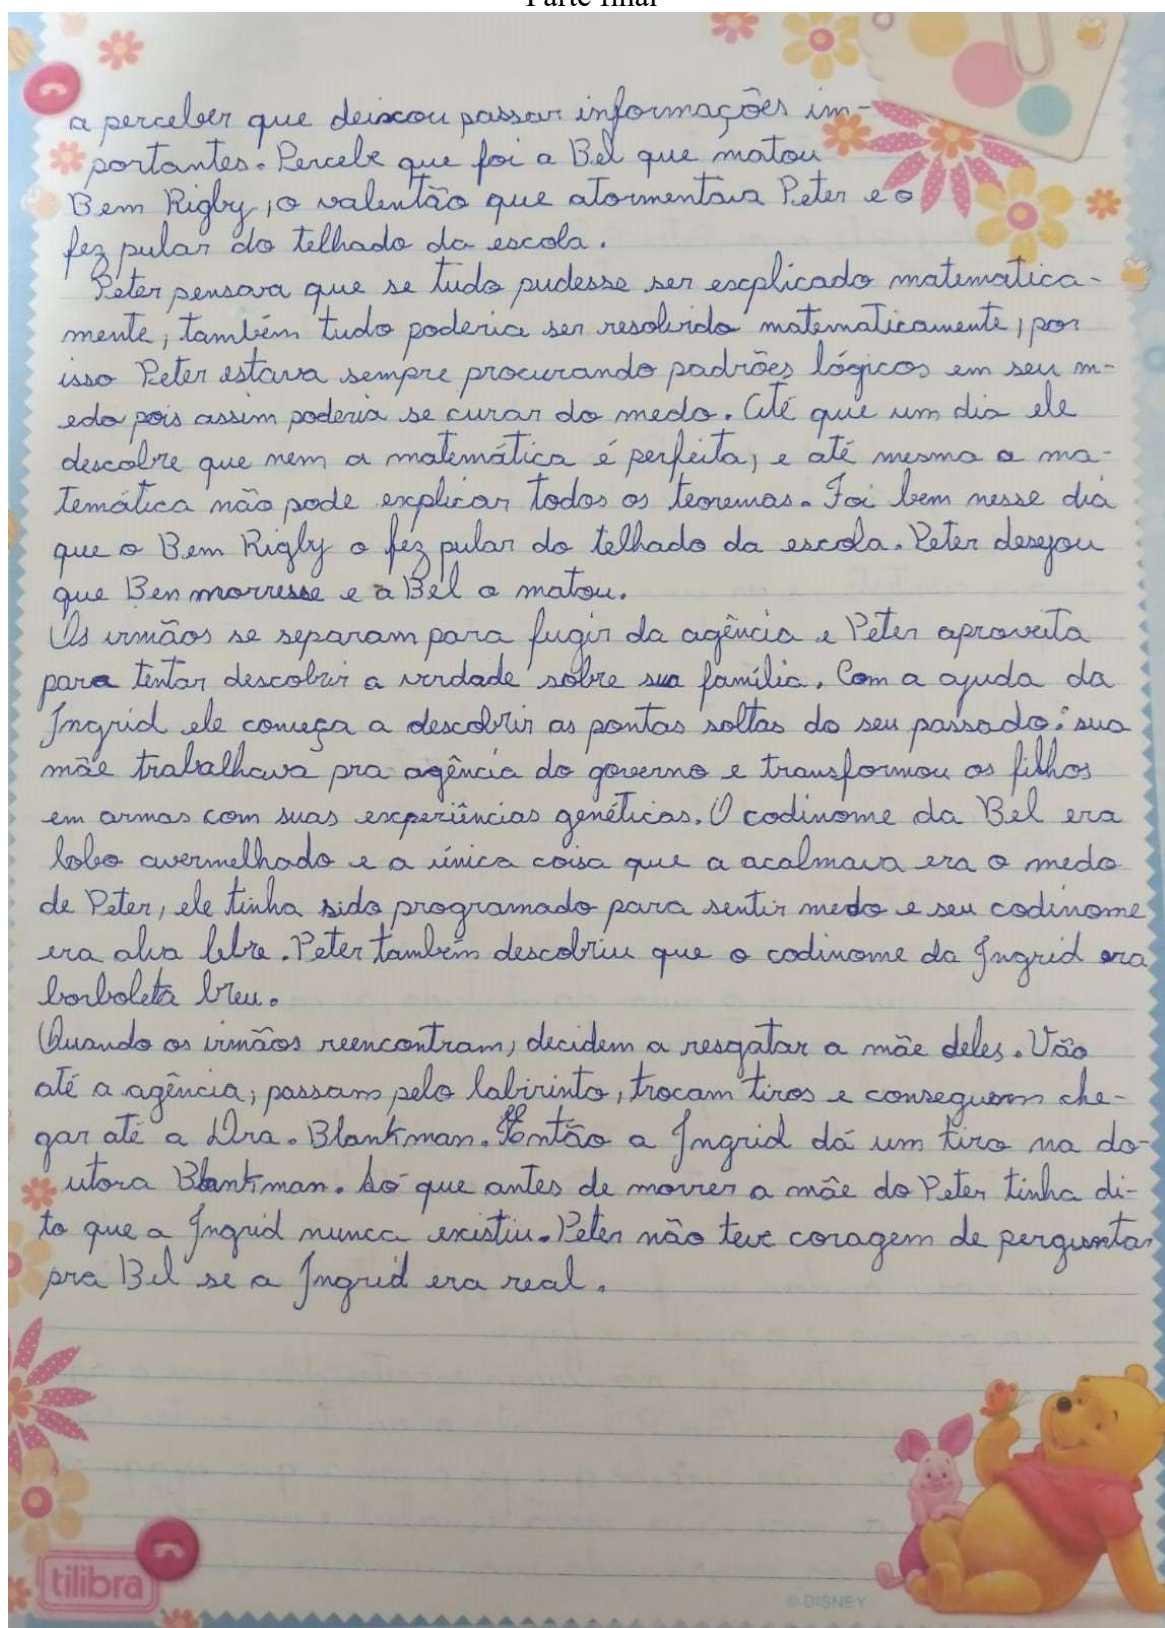 Parte final
a perceber que deixou passar informações im-
portantes. Percebe que foi a Bel que matou
Bem Rigby, o valentão que atormentava Peter e o
fez pular do telhado da escola.
Peter pensava que se tudo pudesse ser explicado matematica-
mente, também tudo poderia ser resolvido matematicamente, por
isso Peter estava sempre procurando padrões lógicos em seu m-
edo pois assim poderia se curar do medo. Até que um dia ele
descobre que nem a matemática é perfeita, e até mesmo a ma-
temática não pode explicar todos os teoremas. Foi bem nesse dia
que o Bem Rigby o fez pular do telhado da escola. Peter desejou
que Ben morresse e a Bel o matou.
Os irmãos se separam para fugir da agência e Peter aproveita
para tentar descobrir a verdade sobre sua família. Com a ajuda da
Ingrid ele começa a descobrir as pontas soltas do seu passado: sua
mãe trabalhava pra agência do governo e transformou os filhos
em armas com suas experiências genéticas. O codinome da Bel era
lobo avermelhado e a única coisa que a acalmava era o medo
de Peter, ele tinha sido programado para sentir medo e seu codinome
era alva lebre. Peter também descobriu que o codinome da Ingrid era
borboleta breu.
Quando os irmãos reencontram, decidem a resgatar a mãe deles. Vão
até a agência, passam pelo labirinto, trocam tiros e conseguem che-
gar até a Dra. Blankman. Então a Ingrid dá um tiro na do-
utora Blankman. Só que antes de morrer a mãe do Peter tinha di-
to que a Ingrid nunca existiu. Peter não teve coragem de perguntar
pra Bel se a Ingrid era real.
tilibra
© DISNEY